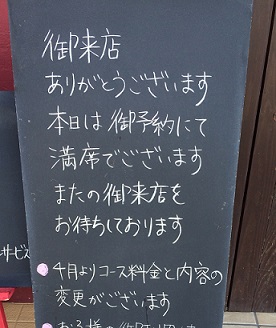 御来店
ありがとうございます
本日は御予約にて
満席でございます
またの御来店を
お待ちしております
4月よりコース料金と内容の
変更がございます
サービス